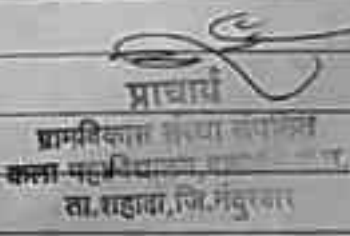 प्राचार्य
ग्रामविकास संस्था संचलित
कला महाविद्यालय,
ता.शहादा,जि.नंदुरबार